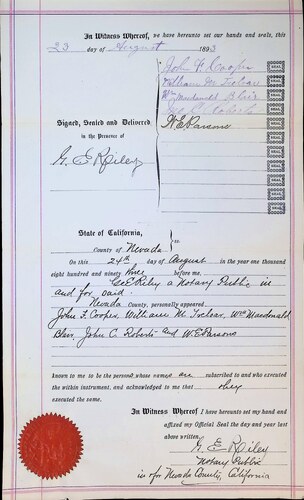 In Witness Whereof, we have hereunto set our hands and seals, this
23 day of August 1893
John F. Cooper
William M.
Wm Macdonald Blair
Jno C. Roberts
W E Parsons
Signed, Sealed and Delivered
in the Presence of
G. E. Riley
State of California,
County of Nevada } ss
On this 24th day of August in the year one thousand
eight hundred and ninety three before me,
Geo E Riley a Notary Public in
and for said
Nevada County, personally appeared
John F. Cooper, William M. Wm Macdonald
Blair, John C. Roberts and W. E. Parsons
known to me to be the persons whose names are subscribed to and who executed
the within instrument, and acknowledged to me that they
executed the same.
In Witness Whereof I have hereunto set my hand and
affixed my Official Seal the day and year last
above written.
G. E. Riley
Notary Public
in & for Nevada County, California